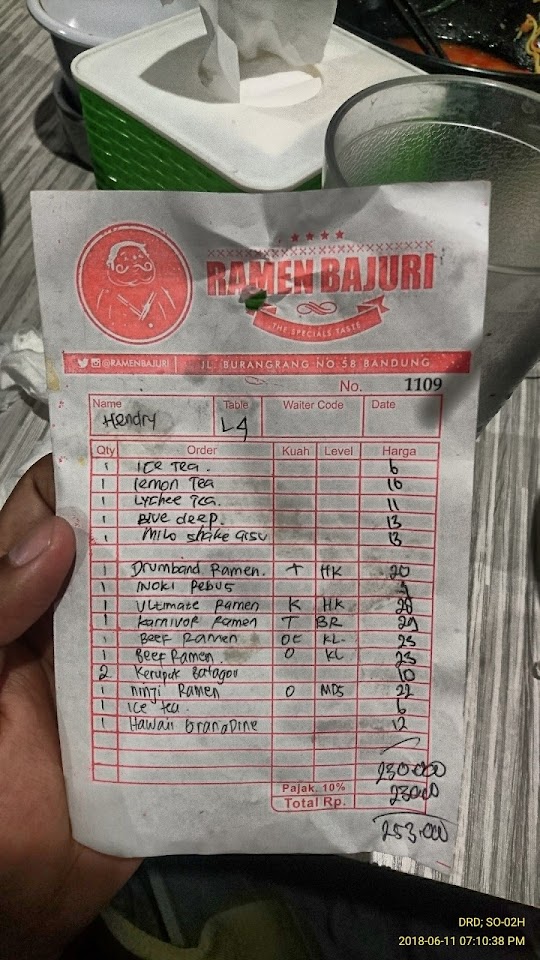 RAMEN BAJURI
THE SPECIALS TASTE
@RAMENBAJURI JL. BURANGRANG NO.58 BANDUNG
No. 1109
Name Table Waiter Code Date
Hendry L4
Qty Order Kuah Level Harga
1 ICE Tea. 6
1 lemon Tea 10
1 Lychee Tea. 11
1 Blue deep. 13
1 Milo shake 13
1 Drumband Ramen. T HK 20
1 Rebus
1 Ultimate Ramen K HK 28
1 Karnivor Ramen T BR 29
1 Beef Ramen KL. 23
1 Beef Ramen. O KL 23
2 Kerupuk Batagor 10
1 Ninji Ramen O MDS 22
1 Ice tea. 6
1 Hawaii 12
230.000
Pajak. 10% 23000
Total Rp.
253.000
DRD; SO-02H
2018-06-11 07:10:38 PM